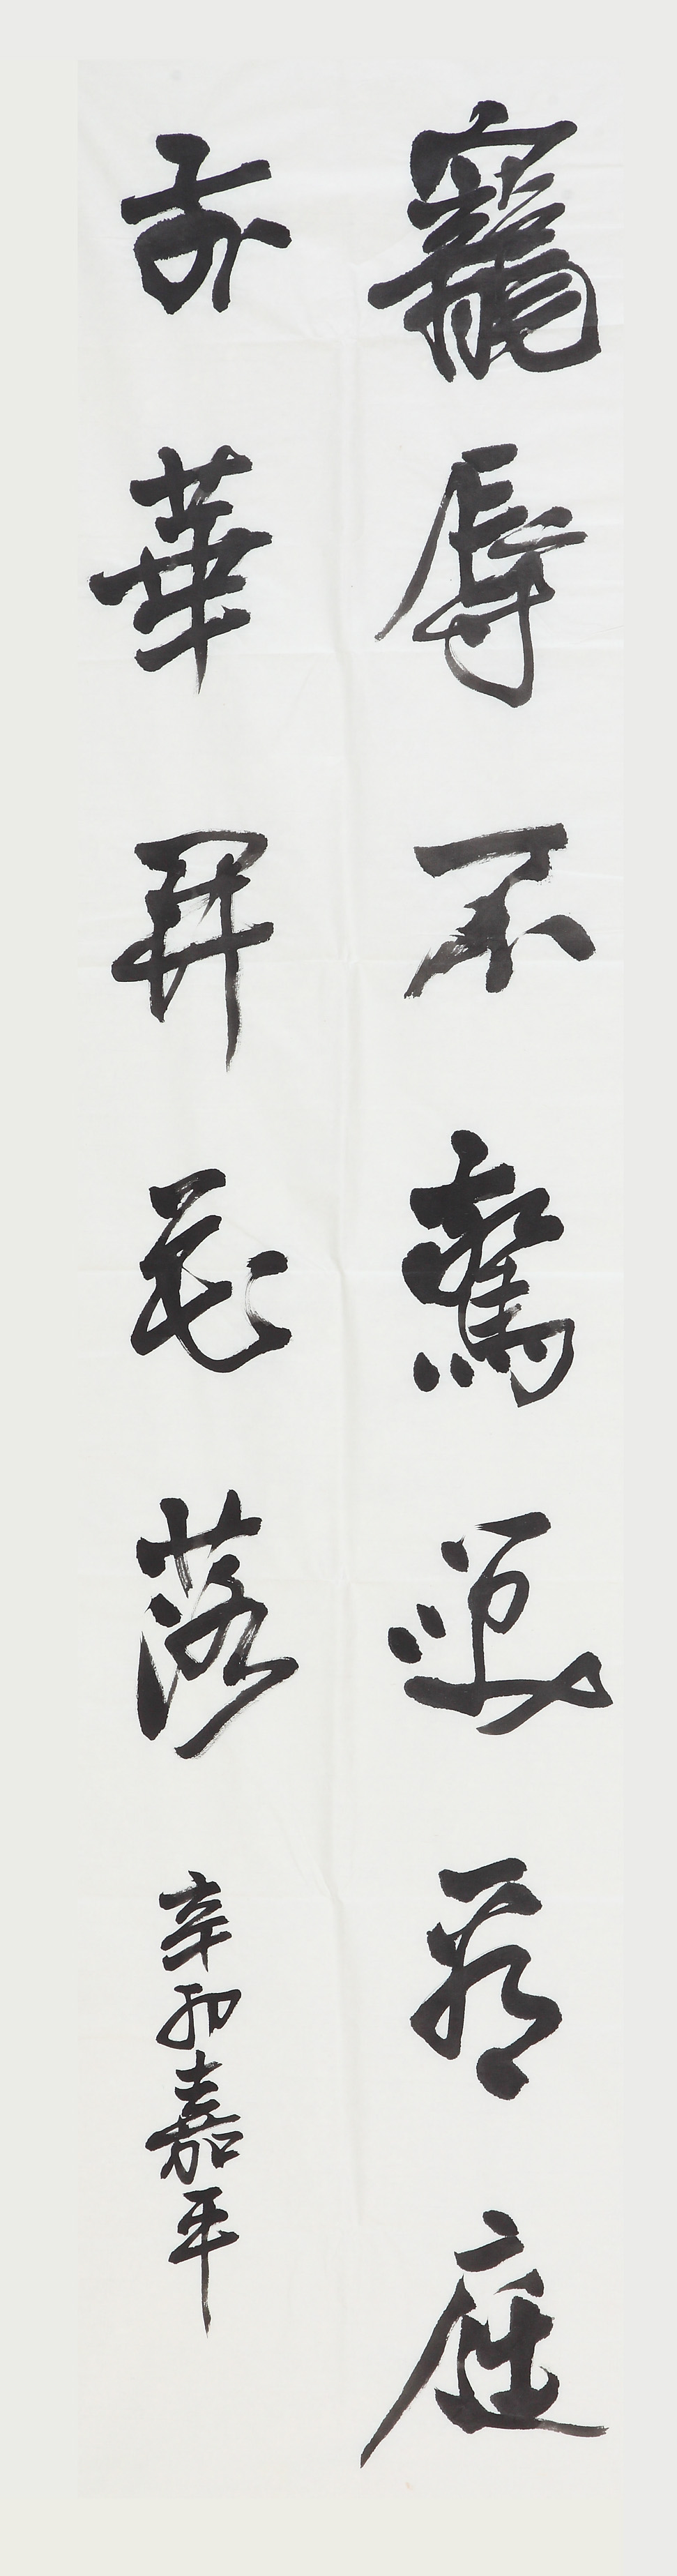 寵辱不驚看庭
前華開花落
辛卯嘉平